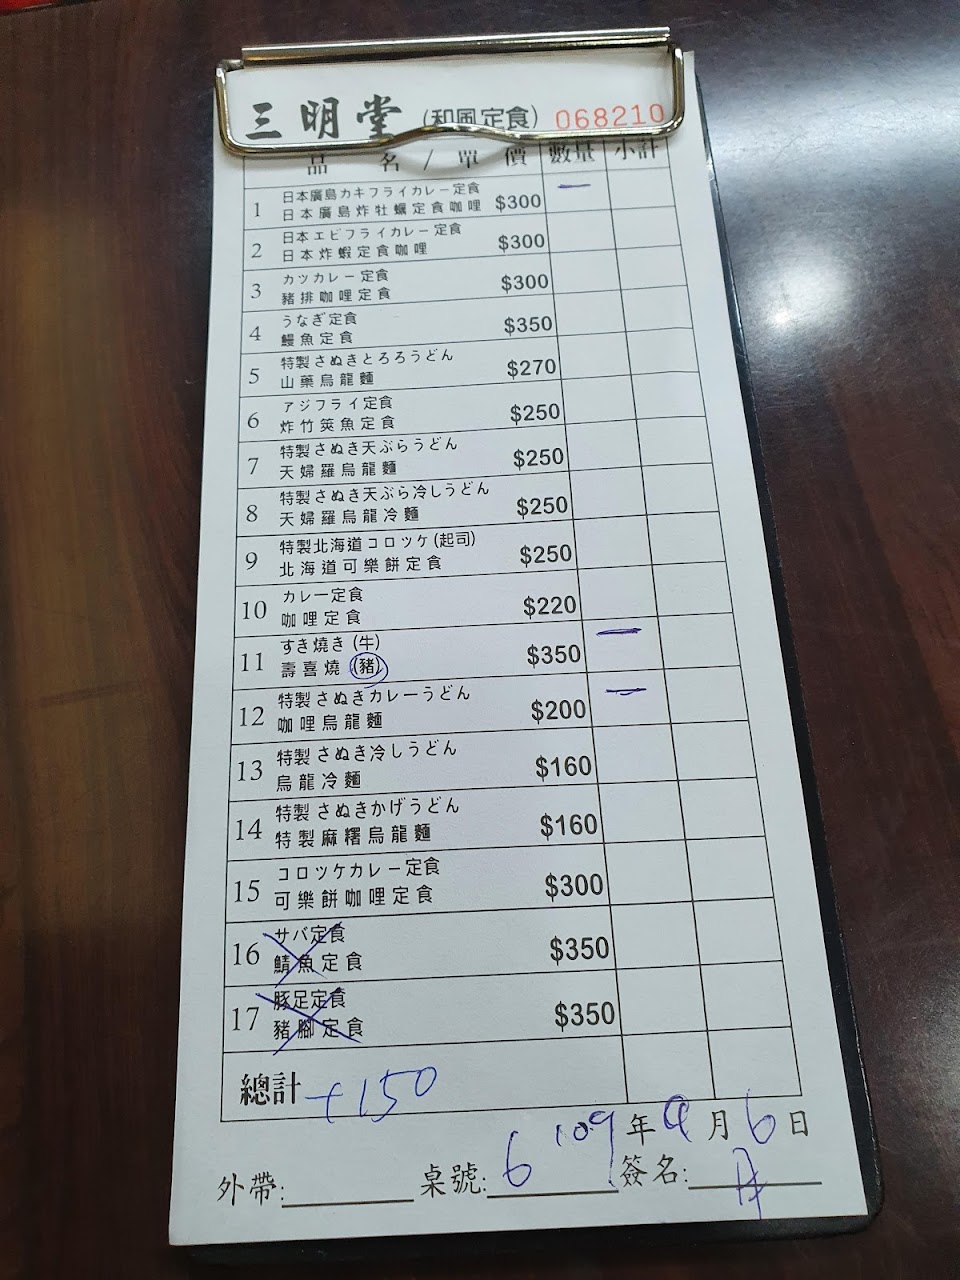 三明堂 (和風定食) 068210
品名/單價 數量 小計
1 日本廣島カキフライカレー定食
日本廣島炸牡蠣定食咖哩 $300 一
2 日本エビフライカレー定食
日本炸蝦定食咖哩 $300
3 カツカレー定食
豬排咖哩定食 $300
4 うなぎ定食
鰻魚定食 $350
5 特製さぬきとろろうどん
山藥烏龍麵 $270
6 アジフライ定食
炸竹筴魚定食 $250
7 特製さぬき天ぷらうどん
天婦羅烏龍麵 $250
8 特製さぬき天ぷら冷しうどん
天婦羅烏龍冷麵 $250
9 特製北海道コロツケ(起司)
北海道可樂餅定食 $250
10 カレー定食
咖哩定食 $220
11 すき燒き (牛)
壽喜燒 (豬) $350 一
12 特製さぬきカレーうどん
咖哩烏龍麵 $200 一
13 特製さぬき冷しうどん
烏龍冷麵 $160
14 特製さぬきかげうどん
特製麻糬烏龍麵 $160
15 コロツケカレー定食
可樂餅咖哩定食 $300
16 サバ定食
鯖魚定食 $350
17 豚足定食
豬腳定食 $350
總計 +150
109年9月6日
外帶: 桌號: 6 簽名: